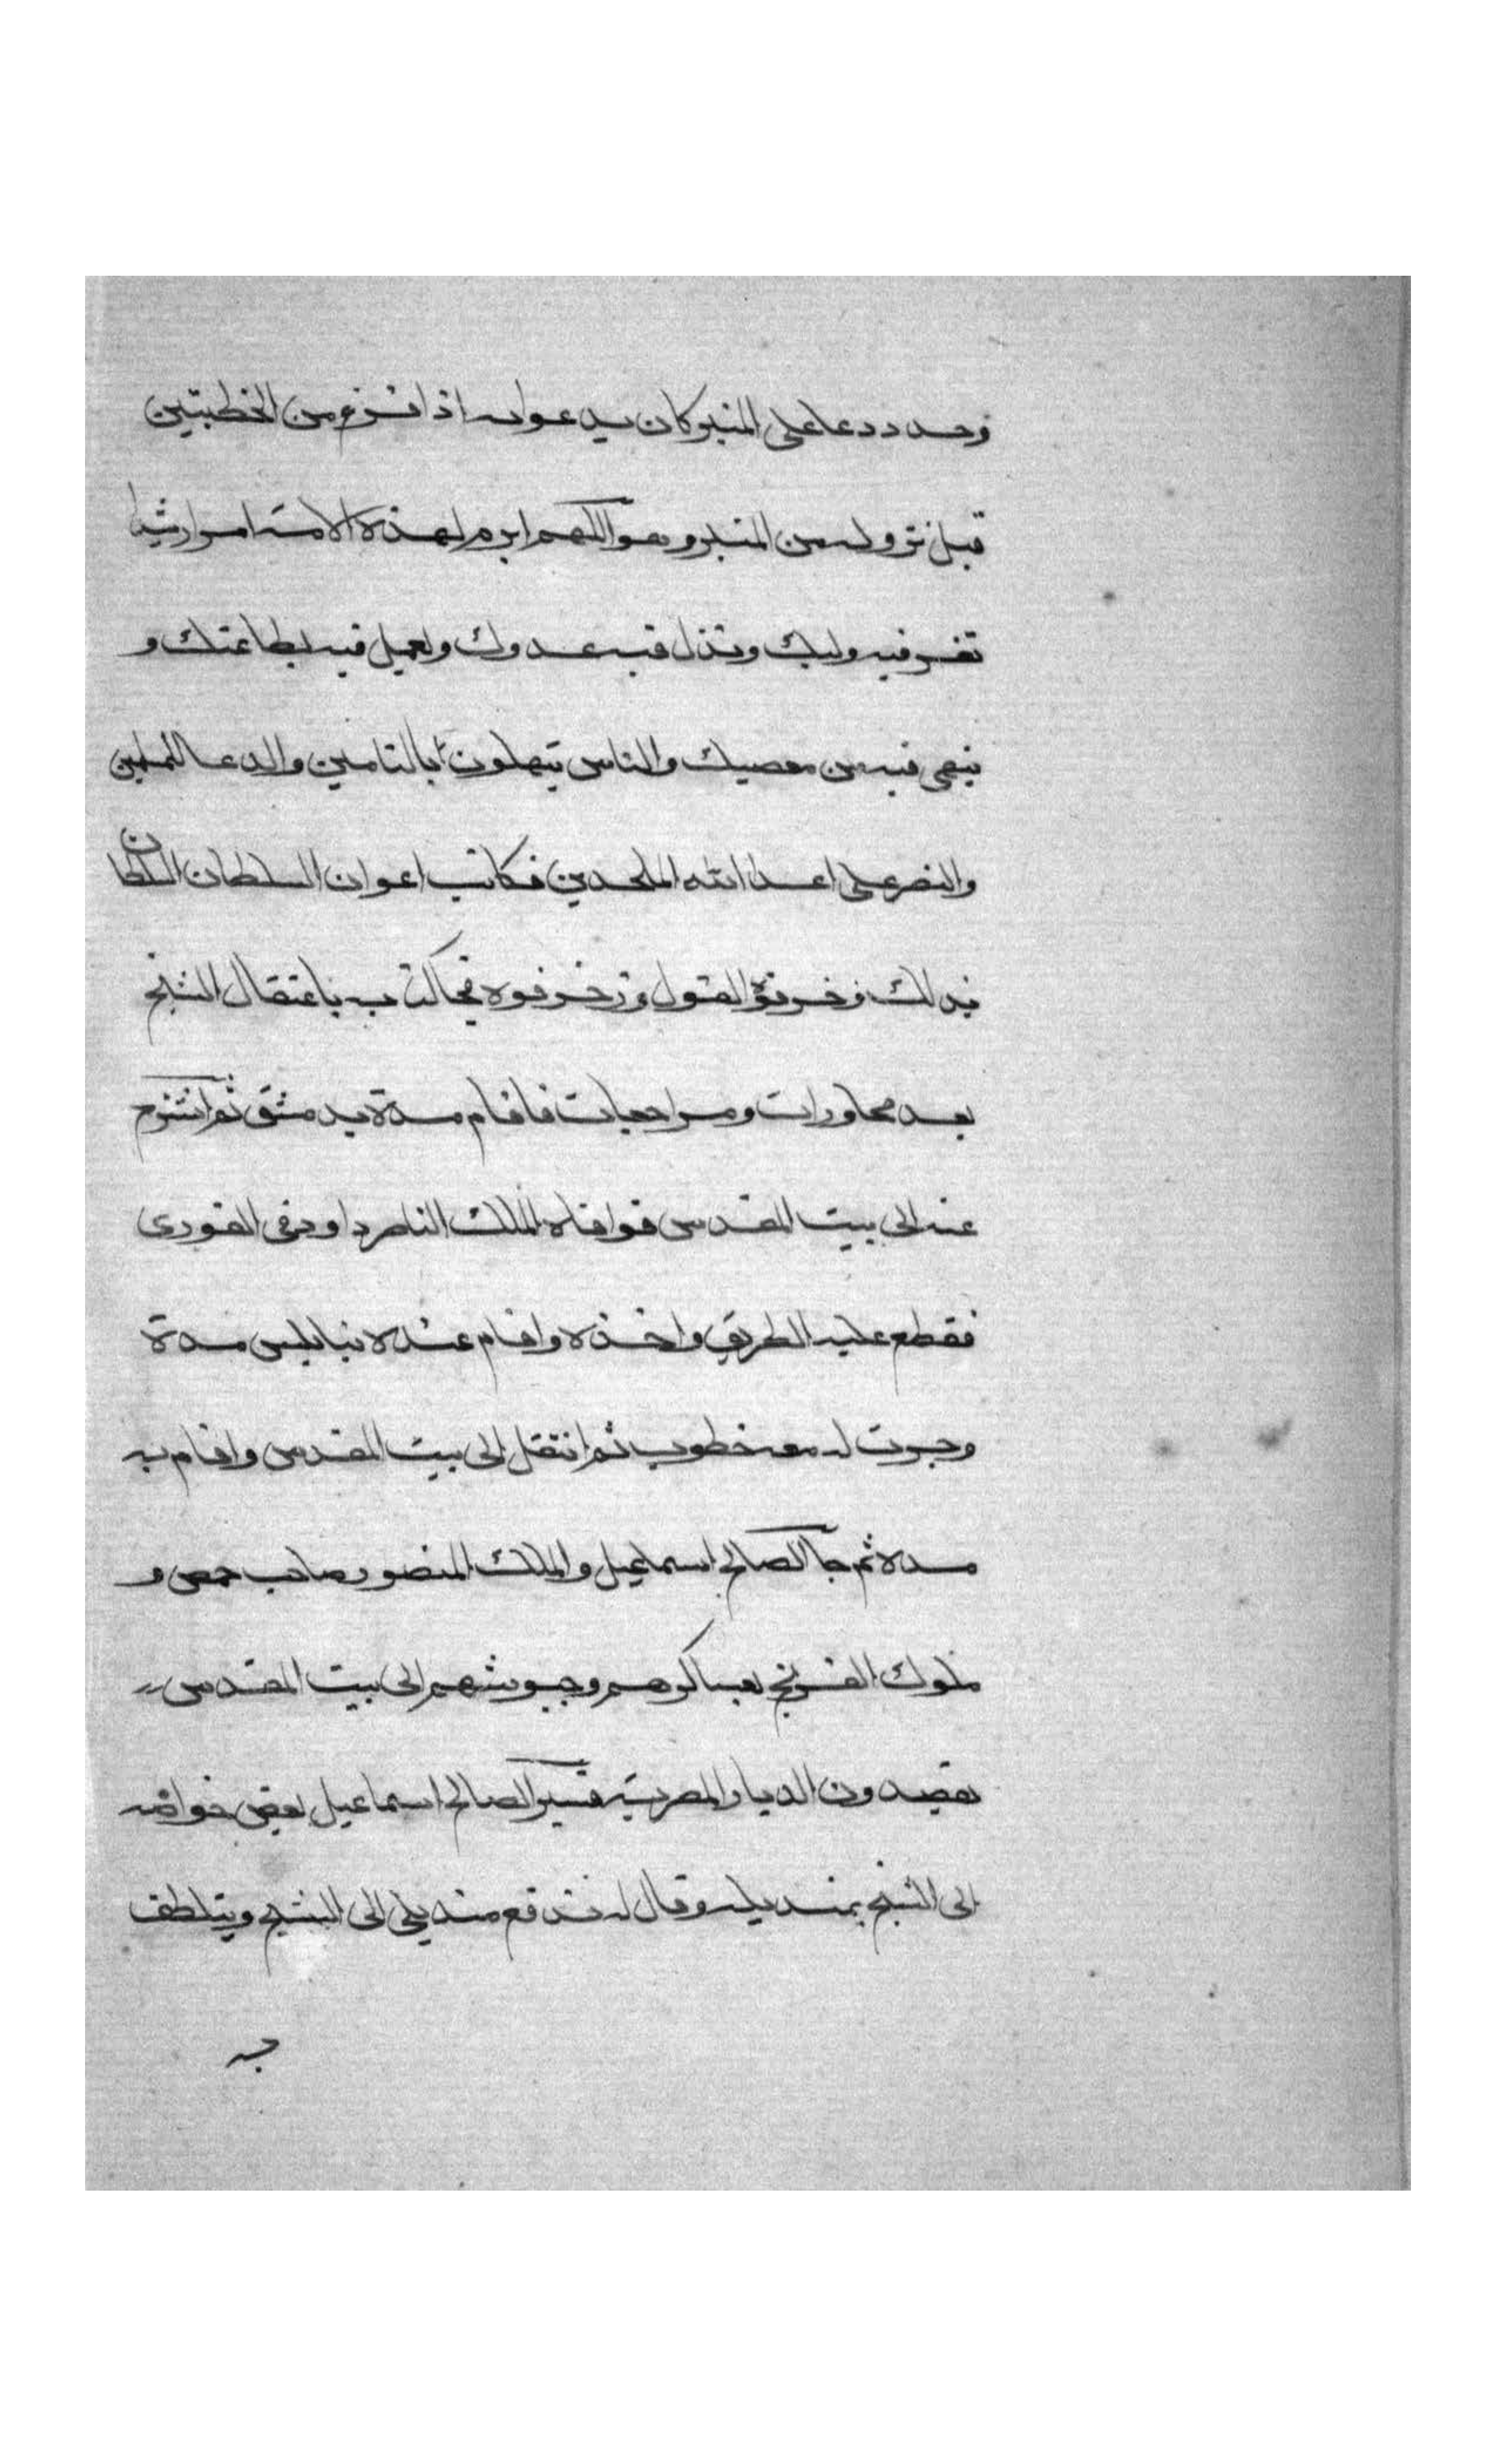 وجدد دعا على المنبر كان يدعوا به اذا فرغ من الخطبتين
قبل نزوله من المنبر وهو اللهم ابرم لهذه الامة امرا رشيدا
تعز فيه وليك وتذل فيه عدوك ويعمل فيه بطاعتك و
ينهى فيه من معصيتك والناس يبتهلون بالتامين والدعا للمسلمين
والنصر على اعدا الله الملحدين فكاتب اعوان السلطان السلطان
بذلك وحرفوا القول وزخرفوه فجا الكتاب باعتقال الشيخ
بعد محاورات ومراجعات فاقام مدة بدمشق ثم انتزح
عنه الى بيت المقدس فوافاه الملك الناصر داود في الغور
فقطع عليه الطريق واخذه واقام عنده بنابلس مدة
وجرت له معه خطوب ثم انتقل الى بيت المقدس واقام به
مدة ثم جا الصالح اسماعيل والملك المنصور صاحب حمص و
ملوك الفرنج بعساكرهم وجيوشهم الى بيت المقدس
يقصدون الديار المصرية فسير الصالح اسماعيل بعض خواصه
الى الشيخ بمنديله وقال له تدفع منديلى الى الشيخ ويتلطف
به